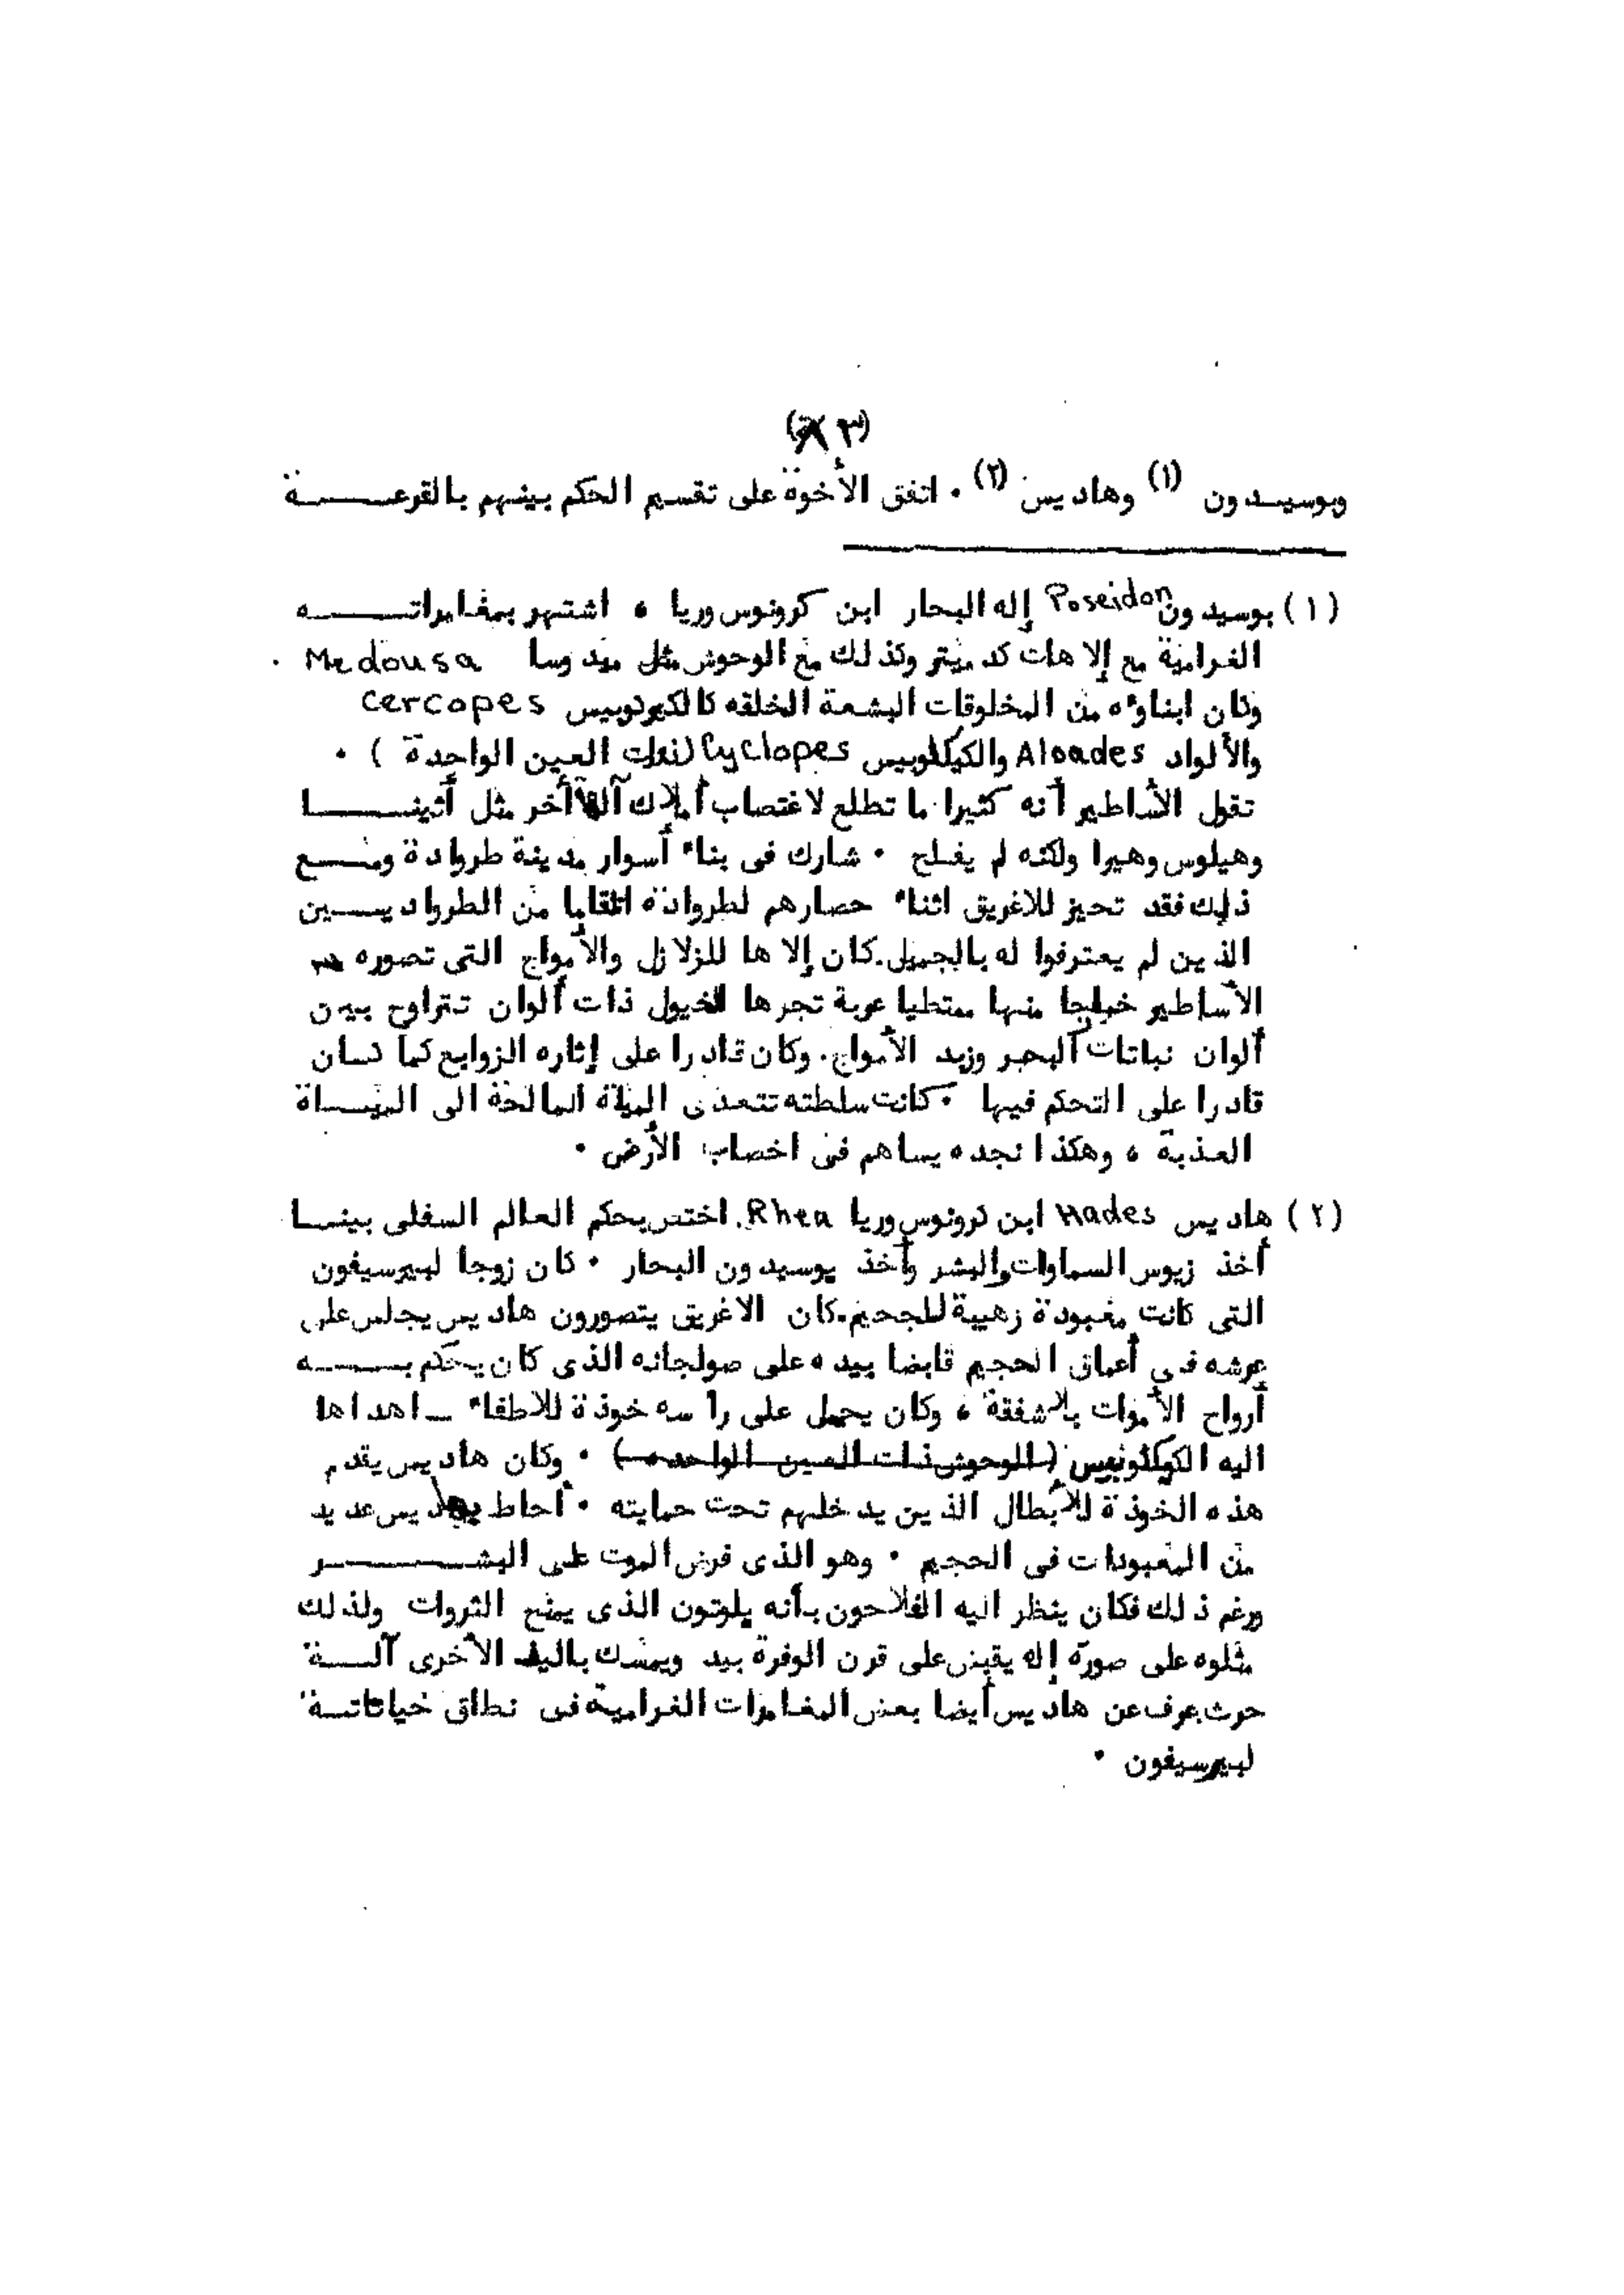 (٨٣)
وبوسيدون (١) وهاديس (٢) ٠ اتفق الأخوة على تقسيم الحكم بينهم بالقرعة
(١) بوسيدون Poseidon إله البحار ابن كرونوس وريا ، اشتهر بمغامراته
الغرامية مع إلاهات كديميتر وكذلك مع الوحوش مثل ميدوسا Medousa .
وكان ابناؤه من المخلوقات البشعة الخلقه كالكيركوبيس cercopes
والألواد Aloades والكيكلوبيس Cyclopes (ذات العين الواحدة ) ٠
تقول الأساطير أنه كثيرا ما تطلع لاغتصاب أملاك آلهة أخر مثل أثينا
وهيلوس وهيرا ولكنه لم يفلح ٠ شارك فى بناء أسوار مدينة طروادة ومع
ذلك فقد تحيز للاغريق اثناء حصارهم لطروادة انتقاما من الطرواديين
الذين لم يعترفوا له بالجميل. كان إلاها للزلازل والأمواج التى تصوره
الأساطير خارجا منها ممتطيا عربة تجرها الخيول ذات ألوان تتراوح بين
ألوان نباتات البحر وزبد الأمواج. وكان قادرا على إثاره الزوابع كما كان
قادرا على التحكم فيها ٠ كانت سلطته تتعدى المياة المالحة الى الميـاة
العذبة ، وهكذا نجده يساهم فى اخصاب الأرض ٠
(٢) هاديس Hades ابن كرونوس وريا Rhea. اختص بحكم العالم السفلى بينما
أخذ زيوس السماوات والبشر وأخذ بوسيدون البحار ٠ كان زوجا لبيرسيفون
التى كانت معبودة رهيبة للجحيم. كان الاغريق يتصورون هاديس يجلس على
عرشه فى أعماق الحجيم قابضا بيده على صولجانه الذى كان يحكم به
أرواح الأموات بلا شفقة ، وكان يحمل على رأسه خوذة للاطفاء ــ اهداها
اليه الكيكلوبيس (الوحوش ذات العين الواحده) ٠ وكان هاديس يقدم
هذه الخوذة للأبطال الذين يدخلهم تحت حمايته ٠ أحاط بهاديس عديد
من المعبودات فى الحجيم ٠ وهو الذى فرض الموت على البشر
ورغم ذلك فكان ينظر اليه الفلاحون بأنه بلوتون الذى يمنح الثروات ولذلك
مثلوه على صورة إله يقبض على قرن الوفرة بيد ويمسك باليد الأخرى آلـة
حرث. عرف عن هاديس أيضا بعض المغامرات الغرامية فى نطاق خياناتة
لبيرسيفون ٠